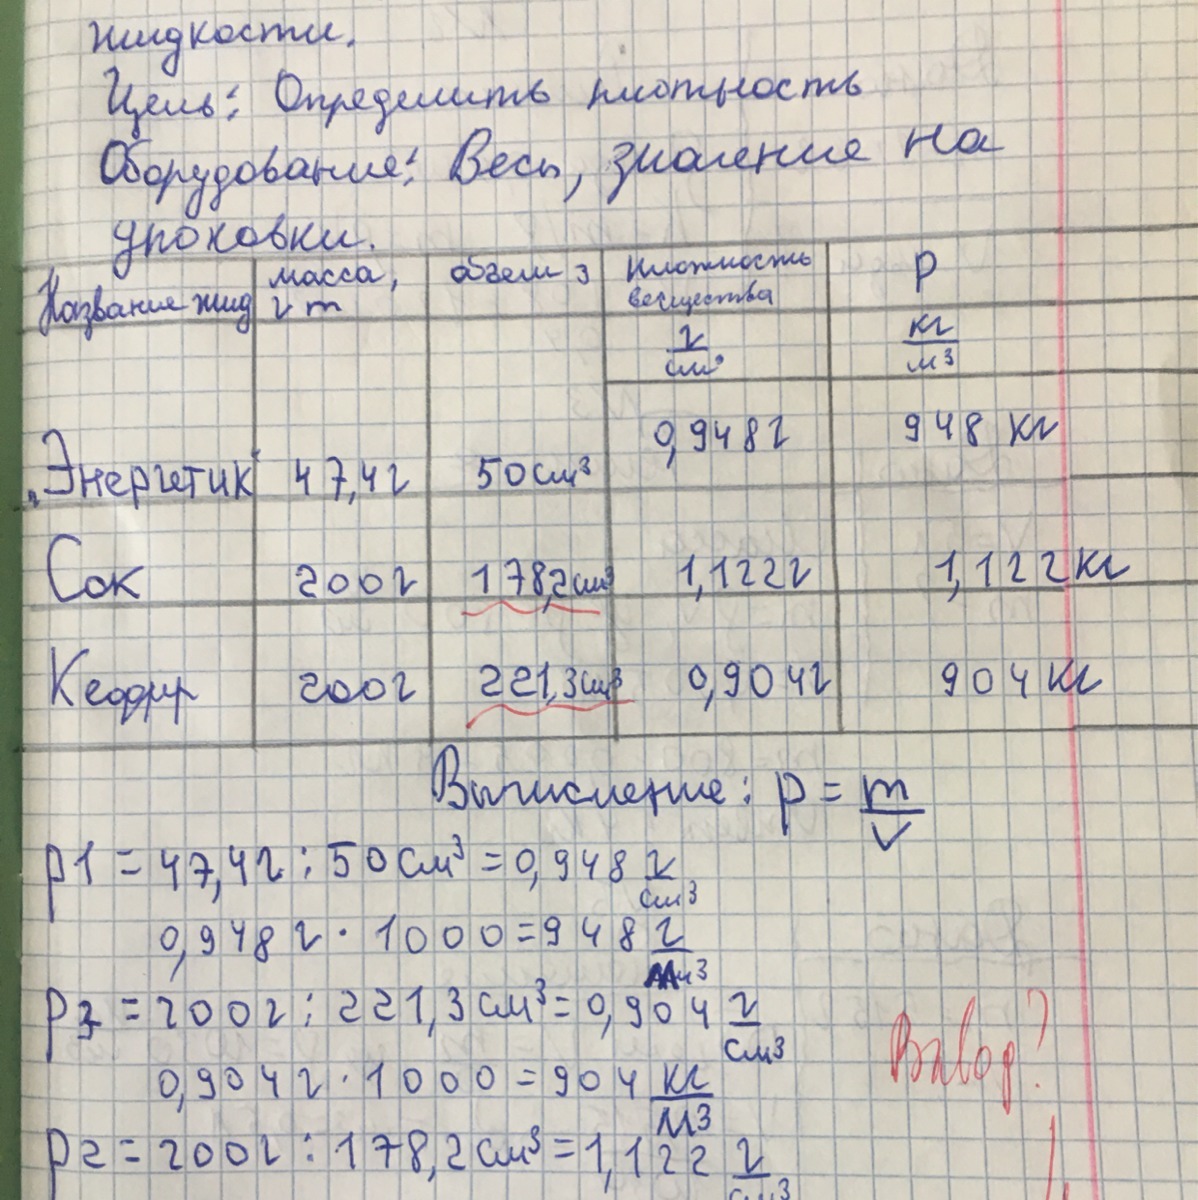 жидкости.
Цель: Определить плотность
Оборудование: Весы, значение на
упоковки.
Название жид масса, г m объем 3 Плотность вещества р
г/см³ кг/м3
Энергетик 47,4г 50см³ 0,948г 948 кг
Сок 200г 178,2см³ 1,122г 1,122кг
Кефир 200г 221,3см³ 0,904г 904кг
Вычисление: p = m/V
p1 = 47,4г : 50см³ = 0,948 г/см3
0,948г · 1000 = 948 г/м3
p3 = 200г : 221,3см³ = 0,904 г/см3
0,904г · 1000 = 904 кг/м3
Вывод?
p2 = 200г : 178,2см³ = 1,122 г/см3